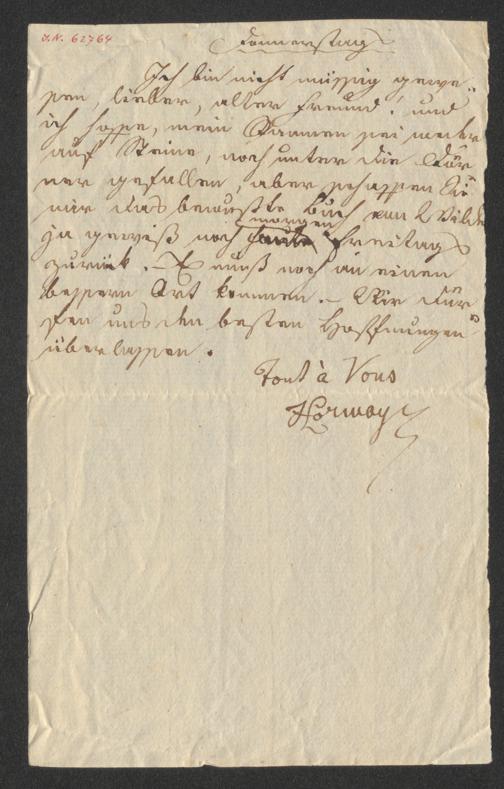 J.N. 62764
Donnerstag
Ich bin nicht müssig gewe-
sen, lieber, alter Freund! und
ich hoffe, mein Saamen sei weder
auf Steine, noch unter die Dör-
ner gefallen, aber schaffen Sie
mir das bewusste Buch von
ja gewiß noch heute morgen Freitags
zurük. – Es muß noch an einen
bessern Ort kommen. – Wir dür-
fen uns den besten Hoffnungen
überlassen.
Tout à Vous